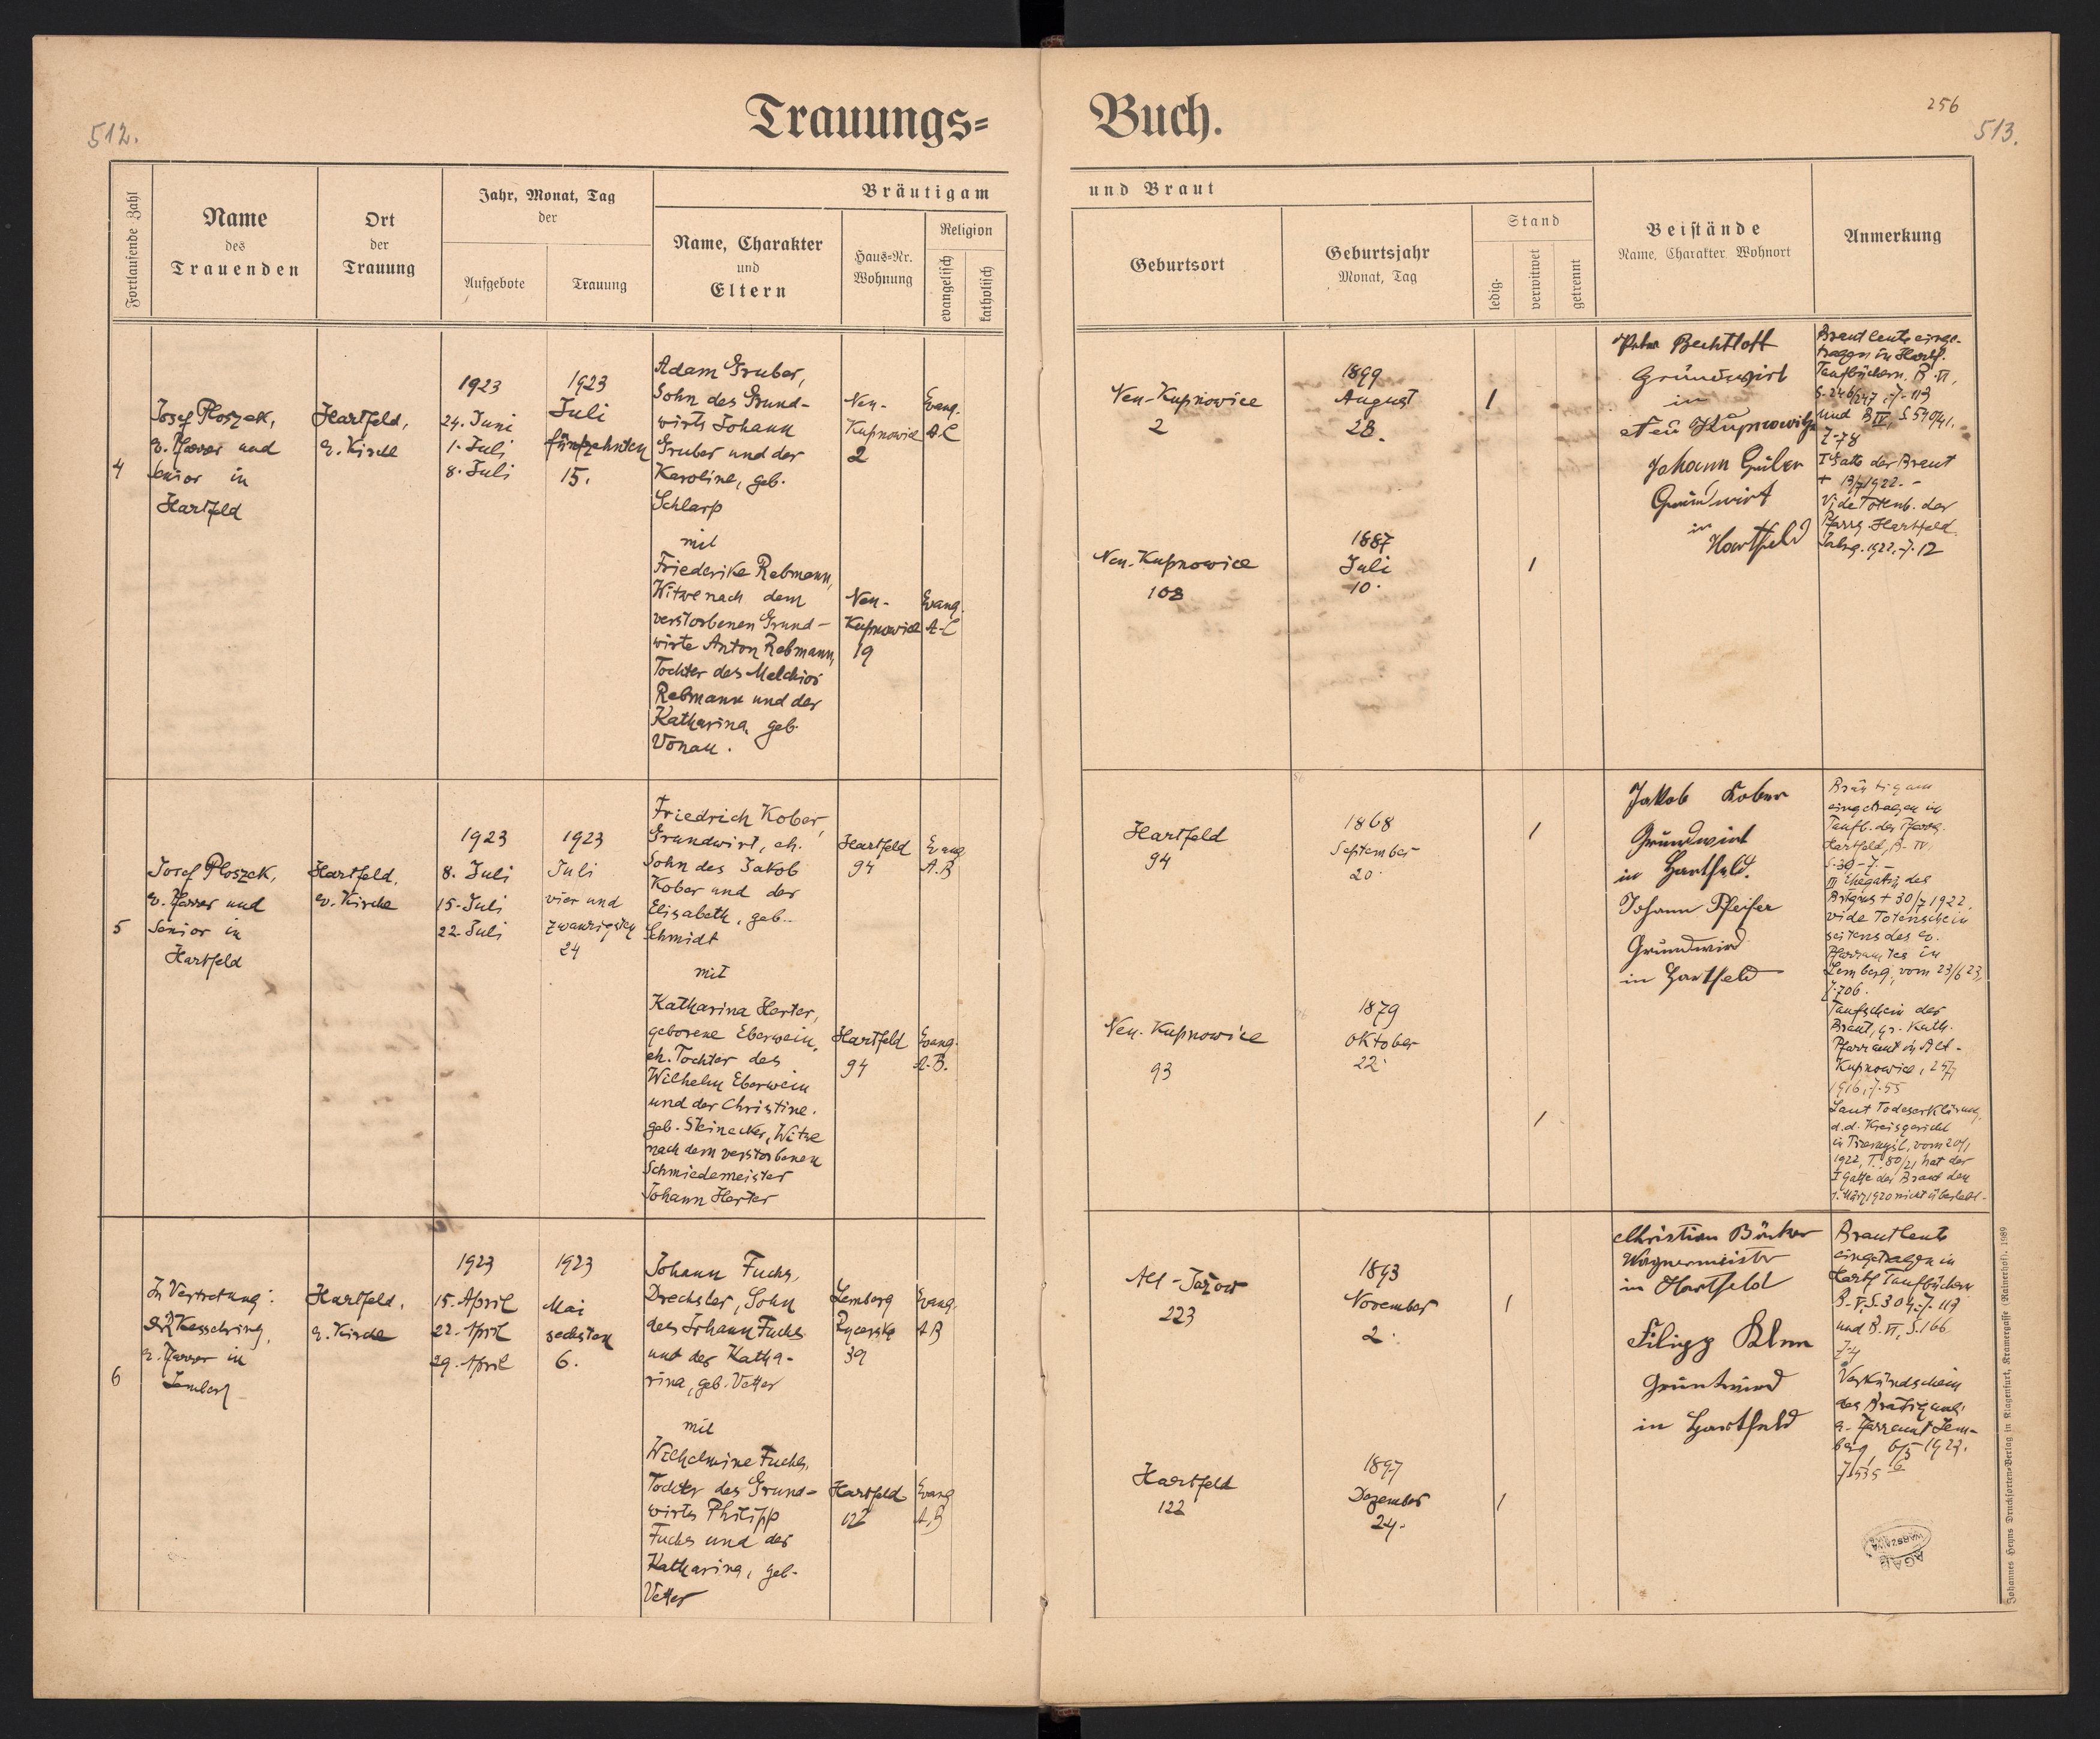 512.
Trauungs=
Buch.
256
513.
Fortlaufende Zahl
Name
des
Trauenden
Ort
der
Trauung
Jahr, Monat, Tag
der
Aufgebote
Trauung
Bräutigam
Name, Charakter
und
Eltern
Haus=Nr.
Wohnung
Religion
evangelisch
katholisch
und Braut
Geburtsort
Geburtsjahr
Monat, Tag
Stand
ledig-
verwitwet
getrennt
Beistände
Name, Charakter, Wohnort
Anmerkung
4
Josef Ploszek,
e. Pfarrer und
Senior in
Hartfeld
Hartfeld,
e. Kirche
1923
24. Juni
1. Juli
8. Juli
1923
Juli
fünfzehnten
15.
Adam Gruber,
Sohn des Grund-
wirts Johann
Gruber und der
Karoline, geb.
Schlarp
mit
Friederike Rebmann,
Witwe nach dem
verstorbenen Grund-
wirte Anton Rebmann,
Tochter des Melchior
Rebmann und der
Katharina, geb.
Vonau.
Neu-
Kupnowice
2
Evang.
Neu-
Kupnowice
19
Evang.
Neu-Kupnowice
2
1899
August
28.
1
Neu-Kupnowice
108
1887
Juli
10.
1
Peter Bechtloff
Grundwirt
in
Neu Kupnowitze
Johann
Grundwirt
in
Hartfeld
Brautleute einge-
tragen in Hartf.
Taufbüchern. B. VI,
S. 246/247, Z. 113
und B IV, S 540/41,
Z-78
I Gatte der Braut
+ 13/7 1922.-
Vide Totenb. der
Pfarre Hartfeld
Jahrg. 1922, Z. 12
5
Josef Ploszek,
ev. Pfarrer und
Senior in
Hartfeld
Hartfeld,
ev. Kirche
1923
8. Juli
15. Juli
22. Juli
1923
Juli
vier und
zwanzigsten
24
Friedrich Kober,
Grundwirt, eh.
Sohn des Jakob
Kober und der
Elisabeth, geb.
Schmidt
mit
Katharina Herter,
geborene Eberwein,
eh. Tochter des
Wilhelm Eberwein
und der Christine,
geb. Steinecker, Witwe
nach dem verstorbenen
Schmiedemeister
Johann Herter
Hartfeld
94
Evang
A.B
Hartfeld
94
Evang.
A.B.
Hartfeld
94
1868
September
20.
1
Neu-Kupnowice
93
1879
Oktober
22.
1
Jakob Kober
Grundwirt
in Hartfeld.
Johann Pfeifer
Grundwird
in Hartfeld
Bräutigam
eingetragen in
Taufb. der Pfarrg.
Hartfeld, B. IV,
S-30-Z.
III Ehegattin des
Brtgms + 30/7 1922,
vide Totenschein
seitens des ev.
Pfarramtes in
Lemberg, vom 23/6 23,
Z. 706.
Taufschein der
Braut, gr. Kath.
Pfarramt in Alt-
Kupnowice,
1916, Z. 55
Laut Todeserklärung
d.d. Kreisgericht
in Przemysl, vom 20/1
1922, T. 80/21 hat der
I Gatte der Braut den
1. März 1920 nicht überlebt.
6
In Vertretung:
Kesselring,
e. Pfarrer in
Lemberg
Hartfeld,
e. Kirche
1923
15. April
22. April
29. April
1923
Mai
sechsten
6.
Johann Fuchs,
Drechsler, Sohn
des Johann Fuchs
und der Katha-
rina, geb. Vetter
mit
Wilhelmine Fuchs,
Tochter des Grund-
wirts Philipp
Fuchs und der
Katharina, geb.
Vetter
Lemberg
Rycerska
39
Evang.
A B
Hartfeld
122
Evang
A.B
Alt-Jażow
223
1893
November
2.
1
Hartfeld
122
1897
Dezember
24.
1
Christian Bänker
Wagnermeister
in Hartfeld
Filipp
in Hartfeld
Brautleute
eingetragen in
Hartf Taufbüchern
B. V, S. 304, Z. 119
und B. VI, S. 166
Z-4
Verkündschein
des Bräutigams
e. Pfarramt Lem-
berg,
AGAD
WARSZAWA
Johannes Heyns Drucksorten=Verlag in Klagenfurt, Kramergasse (Rainerhof). 1989